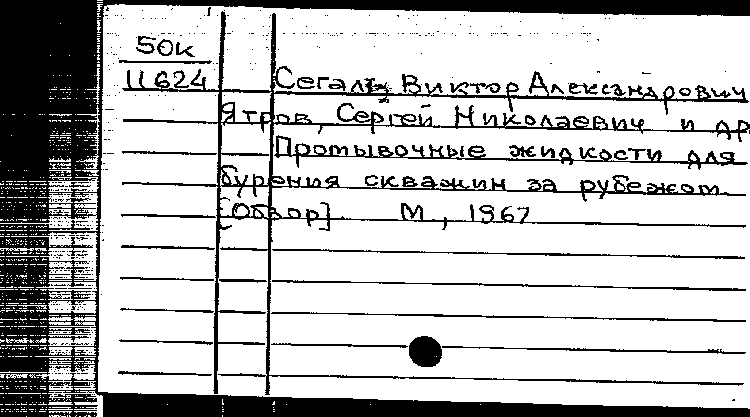 50к
11624
Сегаль Виктор Александрович
Ятров, Сергей Николаевич и др
Промывочные жидкости для
бурения скважин за рубежом.
[Обзор]. М., 1967